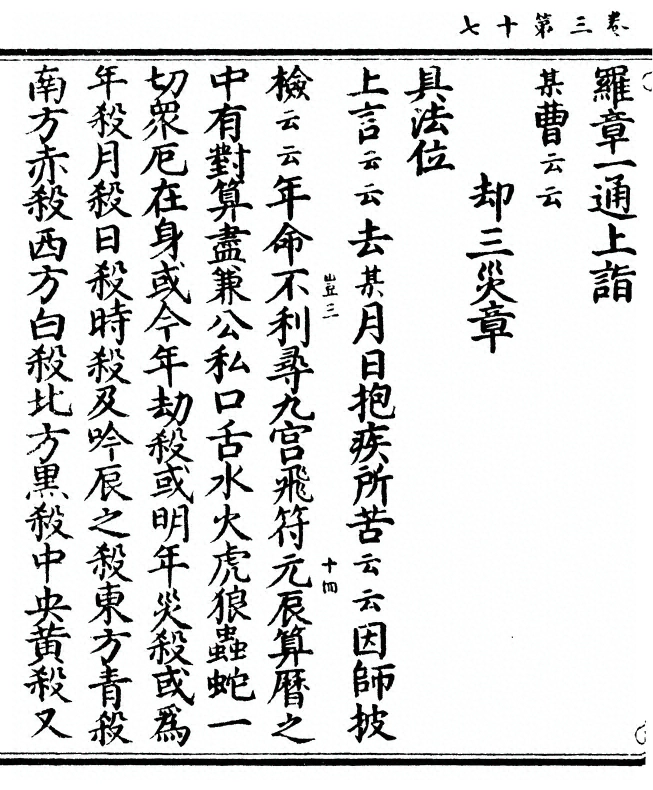 卷三第十七
羅章一通上詣
某曹云云
却三災章
具法位
上言云云去某月日抱疾所苦云云因師披
豈三
十四
檢云云年命不利尋九宫飛符元辰算曆之
中有對算盡兼公私口舌水火虎狼蟲蛇一
切衆厄在身或今年劫殺或明年災殺或爲
年殺月殺日殺時殺及吟辰之殺東方青殺
南方赤殺西方白殺北方黑殺中央黄殺又